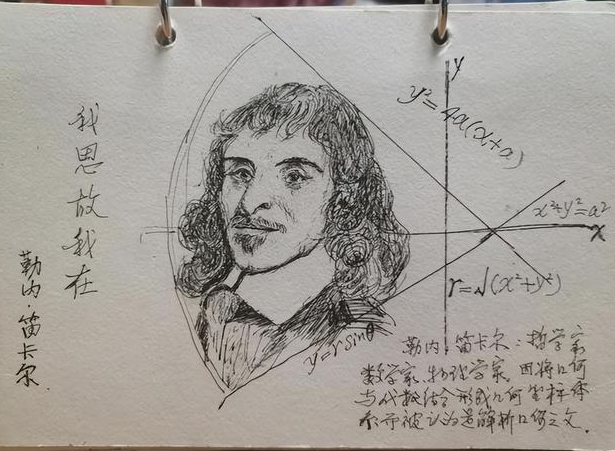 我思故我在
勒内·笛卡尔
y
y²=4a(x+a)
x²+y²=a²
x
r=√(x²+y²)
y=r sinθ
勒内·笛卡尔：哲学家
数学家、物理学家。因将几何
与代数结合形成几何坐标体
系而被认为是解析几何之父。